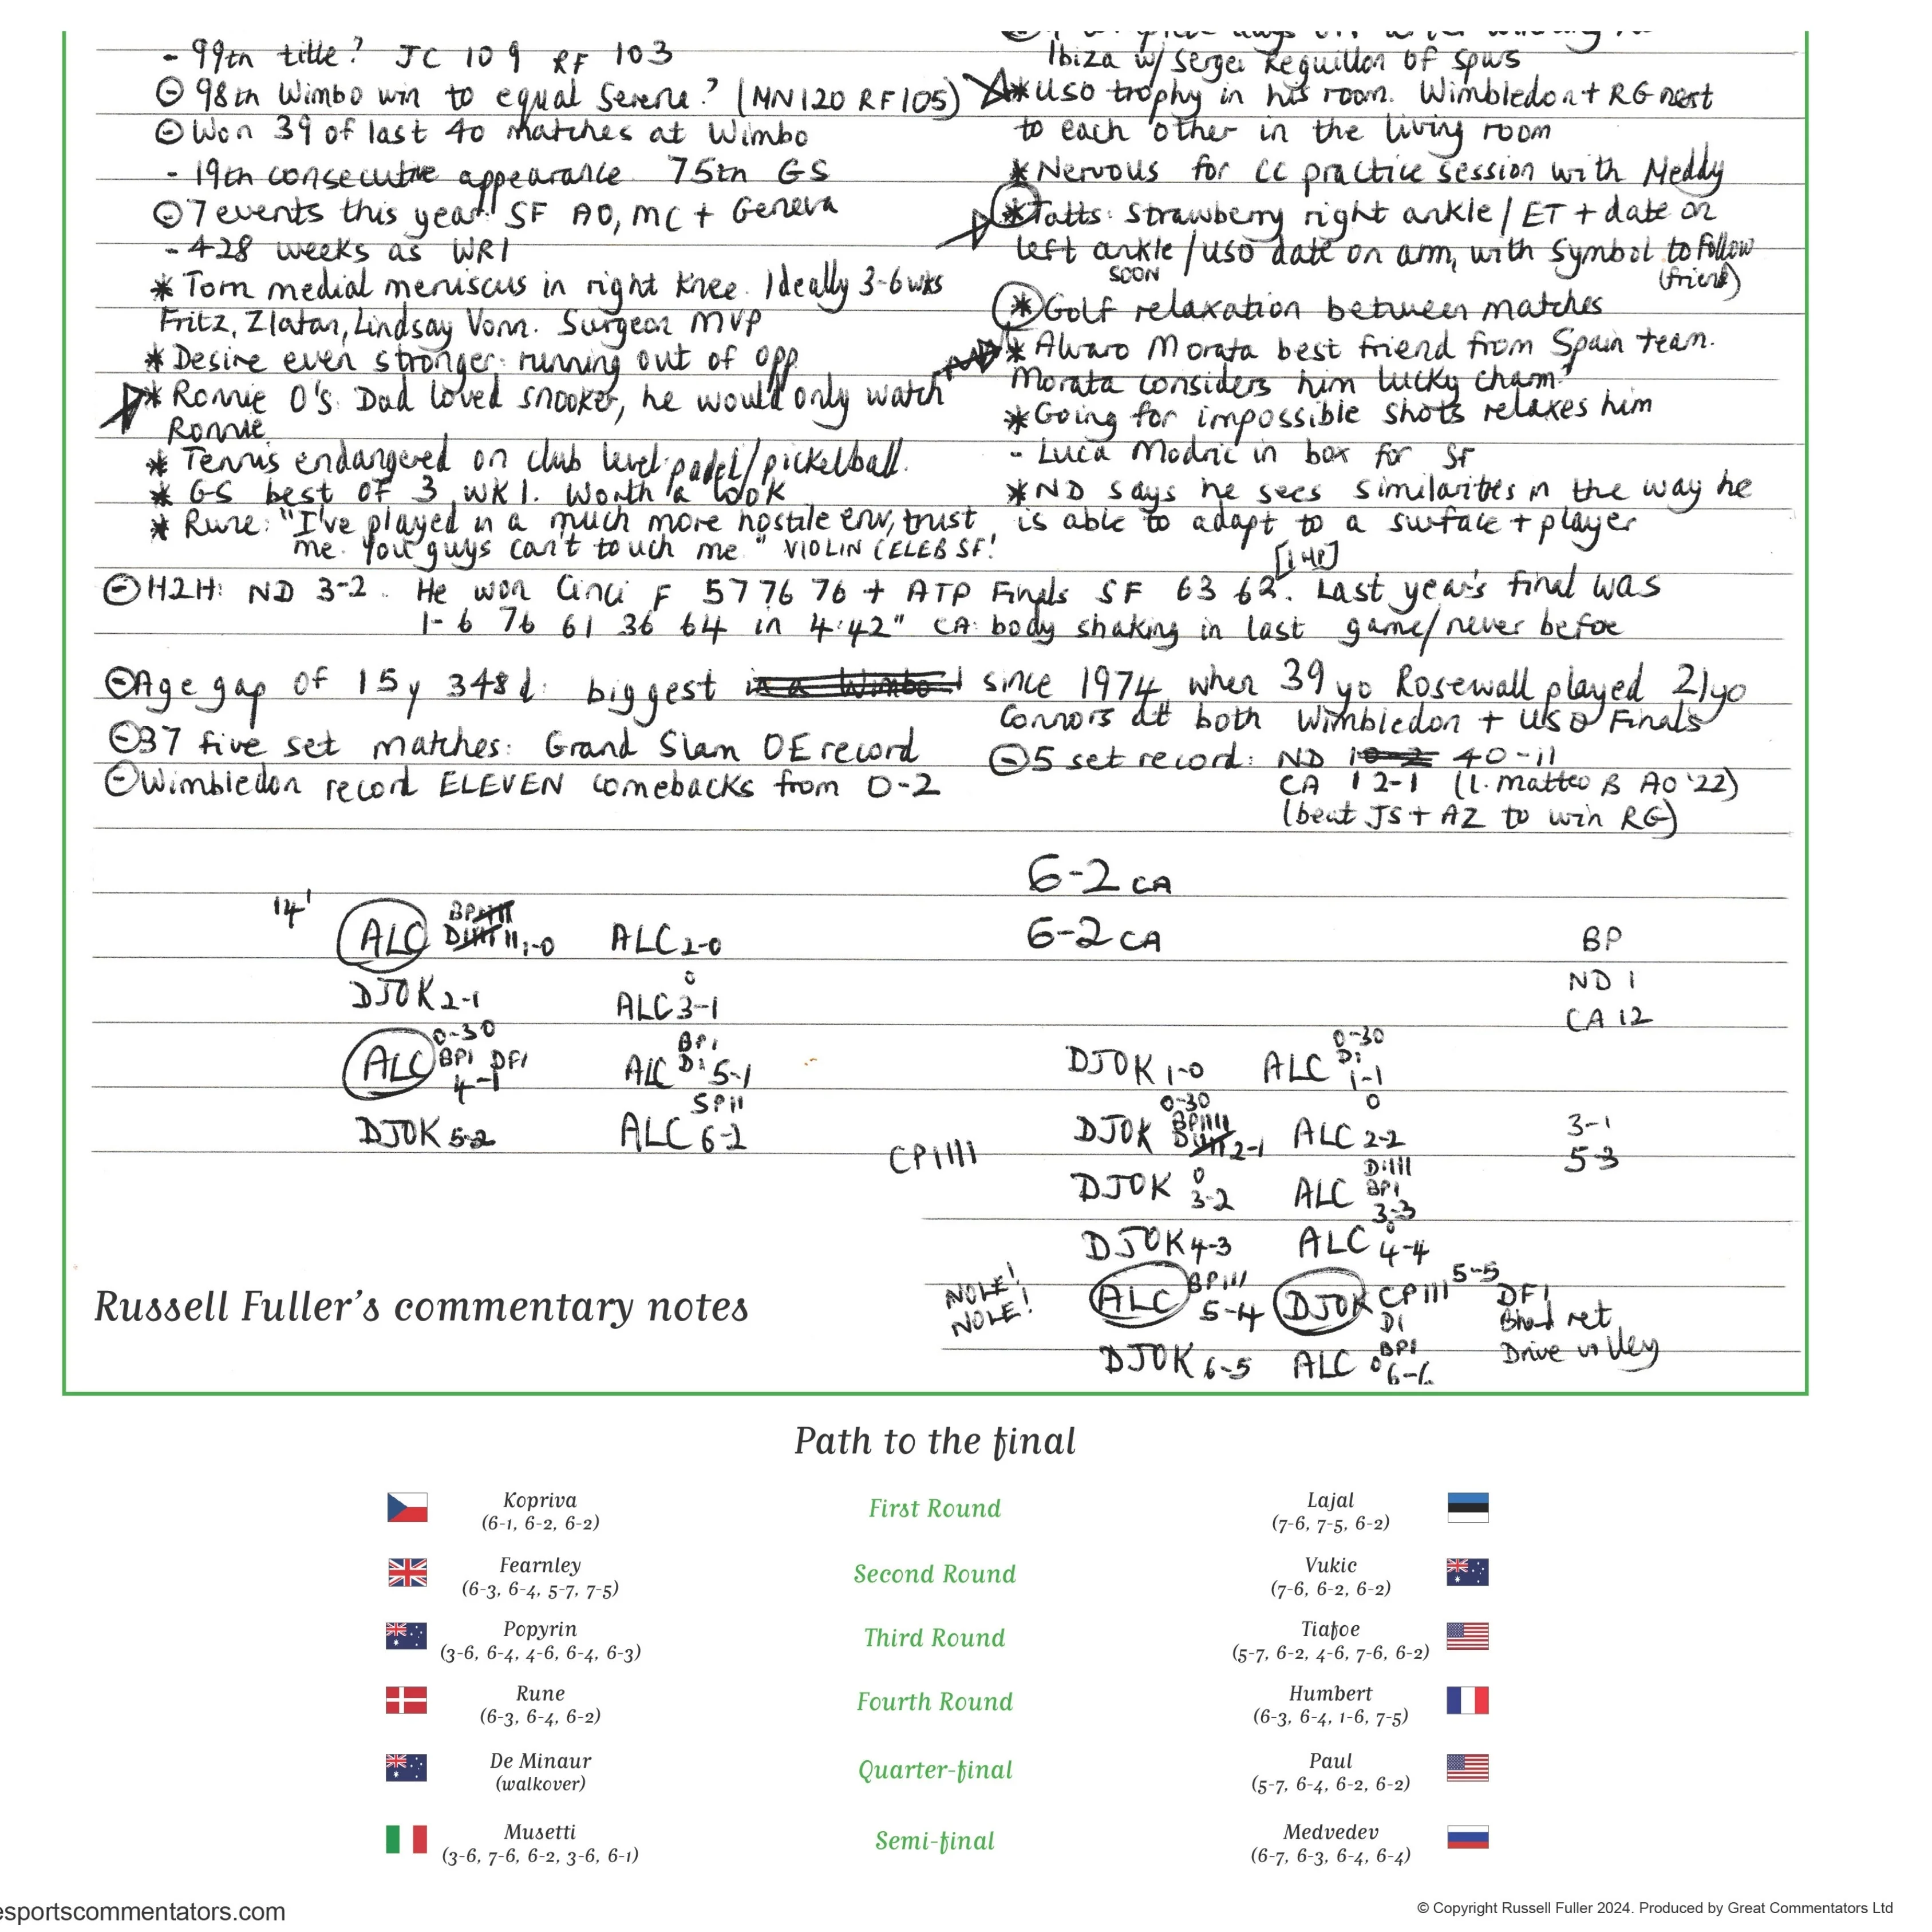 - 99th title? JC 109 RF 103
⊖ 98th Wimbo win to equal Serena? (MN120 RF105)
⊖ Won 39 of last 40 matches at Wimbo
- 19th consecutive appearance 75th GS
⊖ 7 events this year. SF AO, MC + Geneva
- 428 weeks as WR1
* Torn medial meniscus in right knee. Ideally 3-6wks
Fritz, Zlatan, Lindsay Vonn. Surgeon MVP
* Desire even stronger: running out of opp
* Ronnie O'S: Dad loved snooker, he would only watch
Ronnie
* Tennis endangered on club level: padel/pickelball.
* GS best of 3 WK1. Worth a look
* Rune: "I've played in a much more hostile env, trust
me. You guys can't touch me" VIOLIN CELEB SF!
Ibiza w/ Sergei Reguillon of Spurs
* USO trophy in his room. Wimbledon + RG next
to each other in the living room
* Nervous for CC practice session with Meddy
* Tatts: Strawberry right ankle / ET + date on
left ankle / USO date on arm, with symbol to follow
SOON
(friend)
* Golf relaxation between matches
* Alvaro Morata best friend from Spain team.
Morata considers him lucky charm
* Going for impossible shots relaxes him
- Luca Modric in box for SF
* ND says he sees similarities in the way he
is able to adapt to a surface + player
⊖ H2H: ND 3-2. He won Cinci F 57 76 76 + ATP Finals SF 63 62. Last year's final was
1-6 76 61 36 64 in 4:42" CA: body shaking in last game/never befoe
⊖ Age gap of 15y 348d: biggest since 1974 when 39 yo Rosewall played 21yo
Connors at both Wimbledon + USO Finals
⊖ 37 five set matches: Grand Slam OE record
⊖ 5 set record: ND 40-11
⊖ Wimbledon record ELEVEN comebacks from 0-2
CA 12-1 (l. Matteo B AO '22)
(beat JS + AZ to win RG)
6-2 CA
6-2 CA
14'
ALC 1-0 ALC 2-0
DJOK 2-1 ALC 0 3-1
ALC 0-30 BP1 DF1 4-1 ALC BP1 D1 5-1
DJOK 5-2 ALC SPII 6-2
BP
ND 1
CA 12
DJOK 1-0 ALC 0-30 D1 1-1
DJOK 0-30 BPIIII 2-1 ALC 0 2-2
3-1
5-3
CPIIII
DJOK 0 3-2 ALC DIIII BP1 3-3
DJOK 4-3 ALC 0 4-4
NOLE!
NOLE!
ALC BPIII 5-4 DJOK CPIII D1 5-5
DF1
Bhand ret
Drive volley
DJOK 6-5 ALC 0 BP1 6-6
Russell Fuller's commentary notes
Path to the final
Kopriva First Round Lajal
(6-1, 6-2, 6-2) (7-6, 7-5, 6-2)
Fearnley Second Round Vukic
(6-3, 6-4, 5-7, 7-5) (7-6, 6-2, 6-2)
Popyrin Third Round Tiafoe
(3-6, 6-4, 4-6, 6-4, 6-3) (5-7, 6-2, 4-6, 7-6, 6-2)
Rune Fourth Round Humbert
(6-3, 6-4, 6-2) (6-3, 6-4, 1-6, 7-5)
De Minaur Quarter-final Paul
(walkover) (5-7, 6-4, 6-2, 6-2)
Musetti Semi-final Medvedev
(3-6, 7-6, 6-2, 3-6, 6-1) (6-7, 6-3, 6-4, 6-4)
esportscommentators.com
© Copyright Russell Fuller 2024. Produced by Great Commentators Ltd